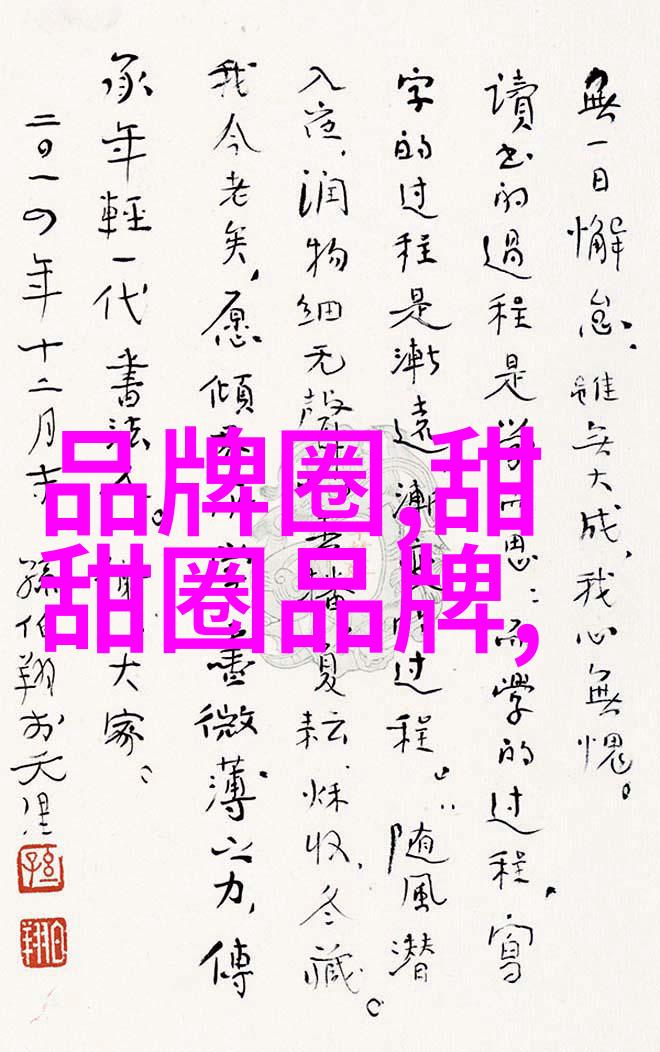 無一日懈怠，雖无大成，我心無愧。
讀书的過程是学思：而學的过程，寫
字的过程是漸遠漸过程。随風潛
入夜，润物细无聲播、夏耘、秋收、冬藏。
我今老矣，愿傾盡微薄之力，傳
承年輕一代書法人。大家
二〇一四年十二月 孫伯翔於天津
孫
伯翔
品牌圈,甜
甜圈品牌,